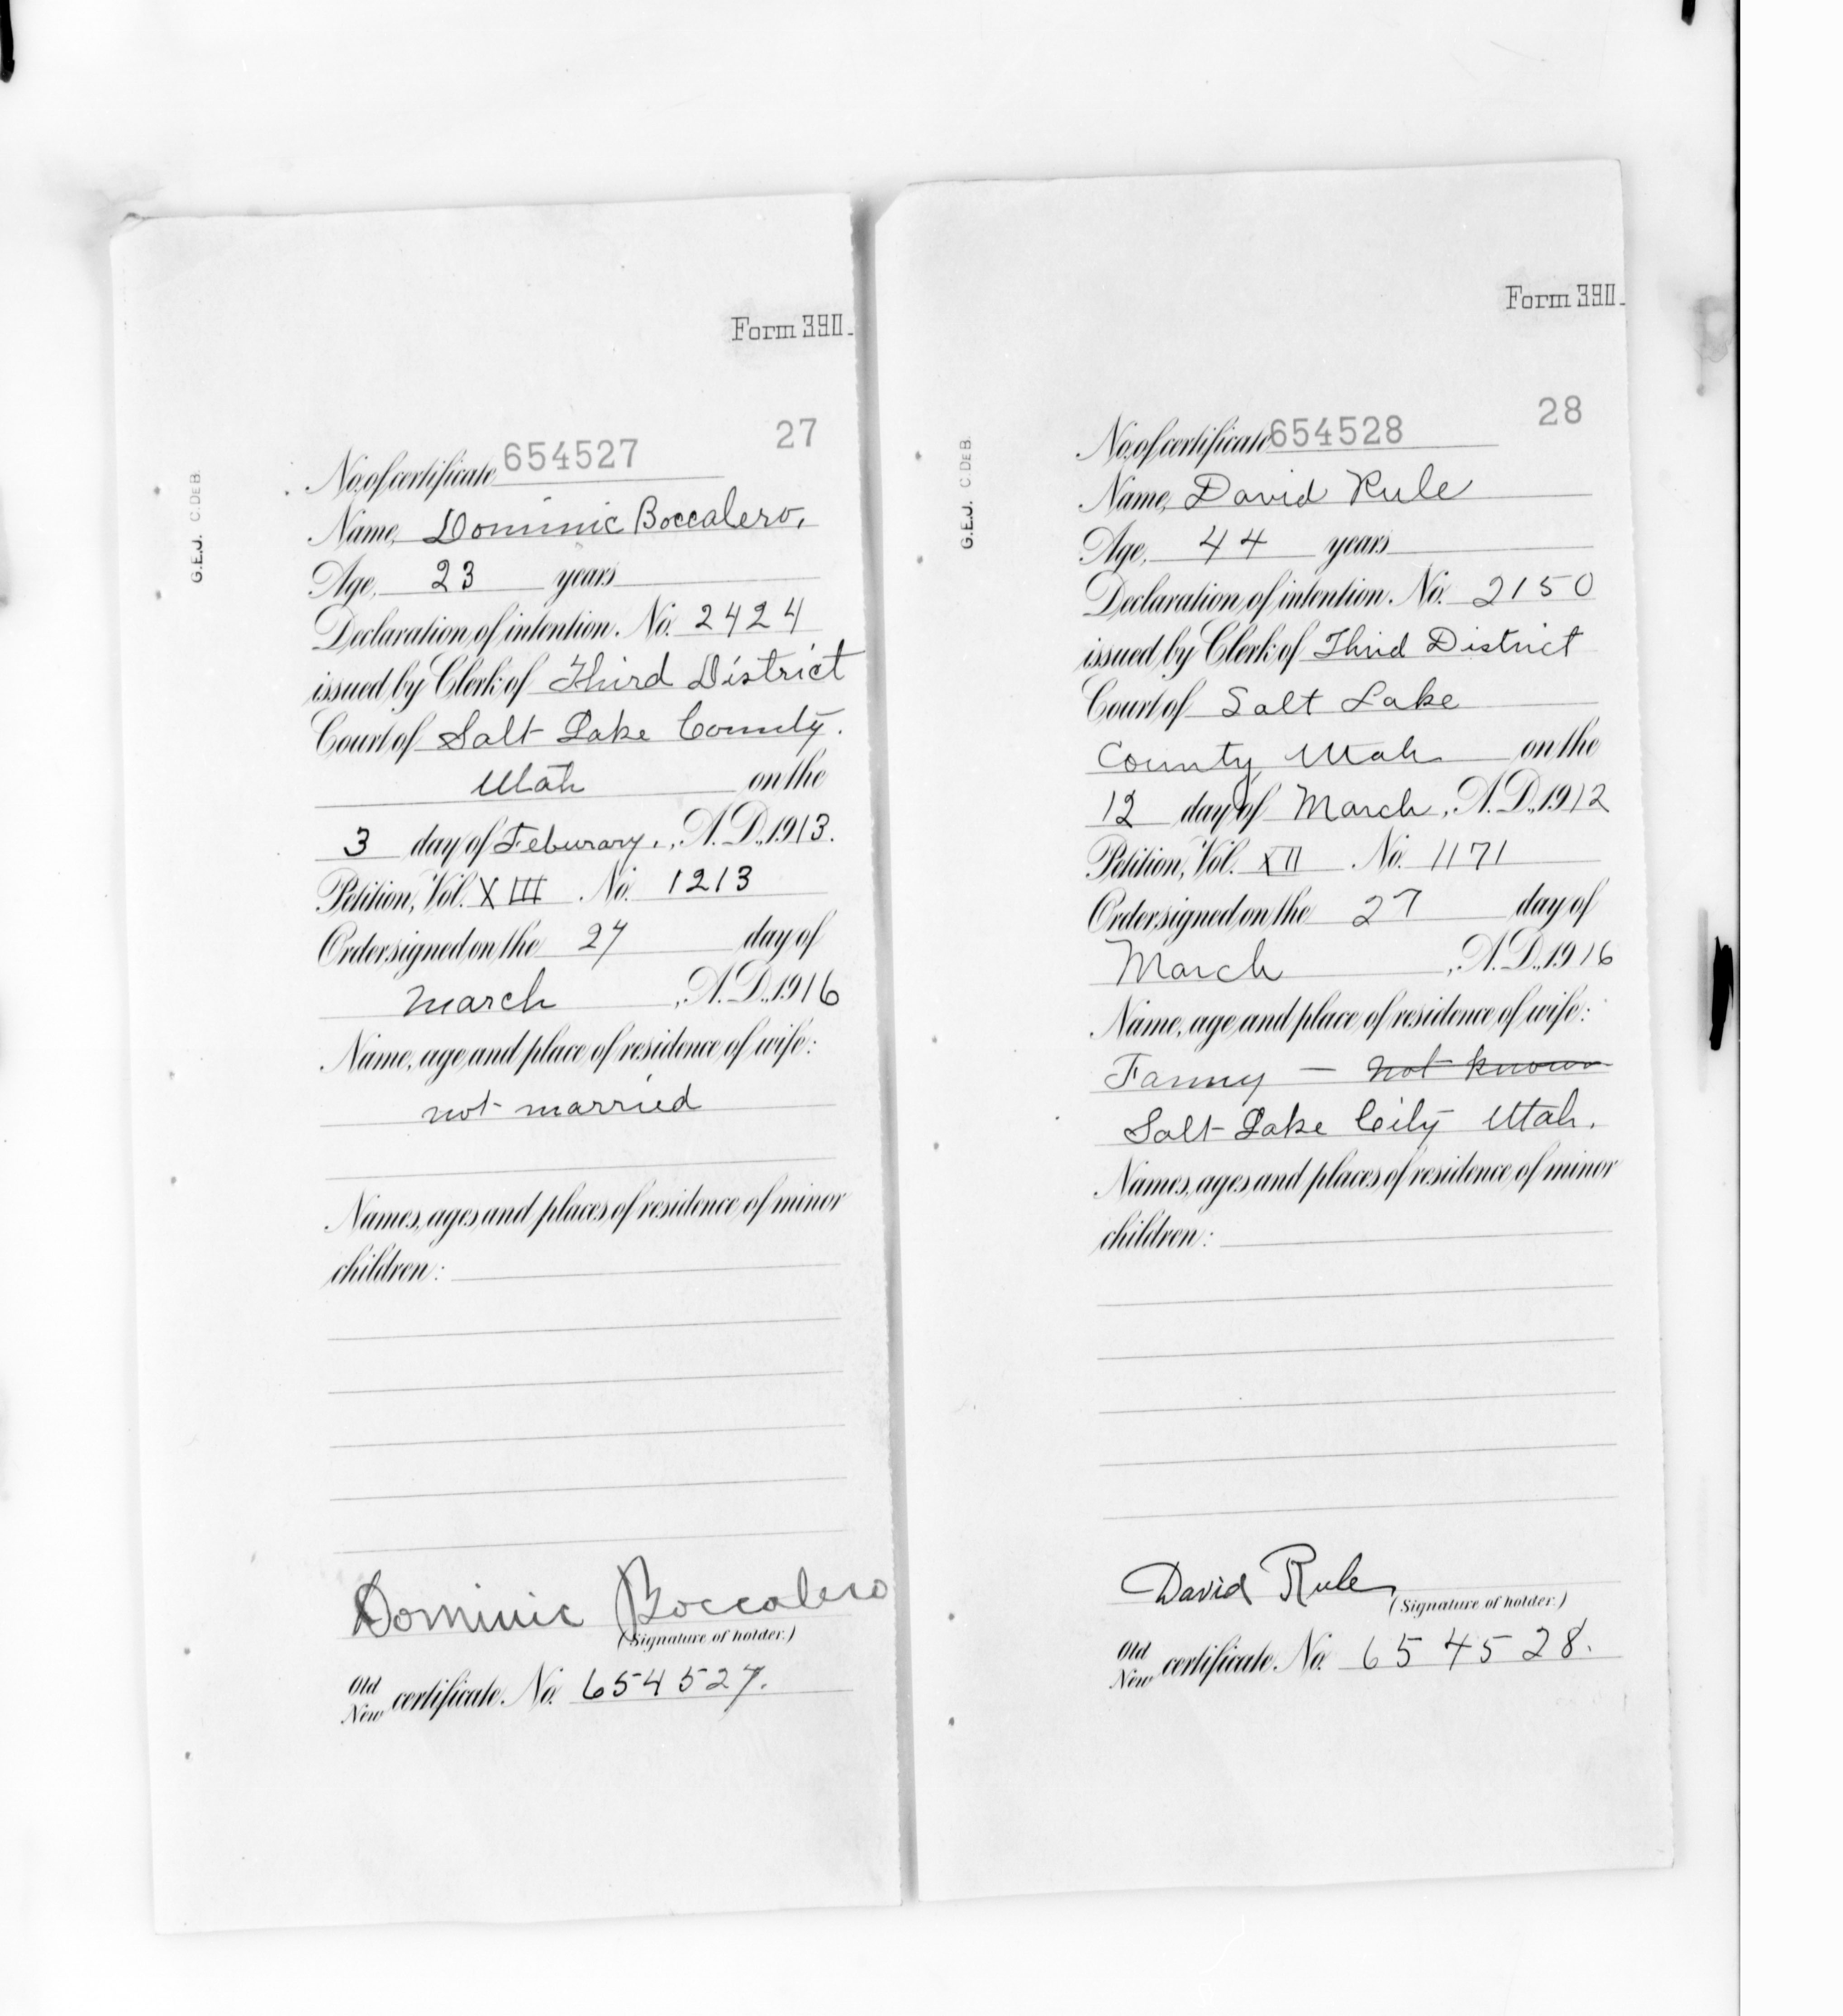 Form 390.
27
No. of certificate 654527
Name, Dominic Boccalero.
Age, 23 years
Declaration of intention. No. 2424
issued by Clerk of Third District
Court of Salt Lake County.
Utah on the
3 day of Feburary., A.D., 1913.
Petition, Vol. XIII No. 1213
Order signed on the 27 day of
March, A.D., 1916
Name, age and place of residence of wife:
not married
Names, ages and places of residence of minor
children:
Dominic Boccalero
(Signature of holder.)
Old
New certificate. No. 654527.
G.E.J. C.DEB.
Form 390.
28
No. of certificate 654528
Name, David Rule
Age, 44 years
Declaration of intention. No. 2150
issued by Clerk of Third District
Court of Salt Lake
County Utah on the
12 day of March, A.D., 1912
Petition, Vol. XII No. 1171
Order signed on the 27 day of
March, A.D., 1916
Name, age and place of residence of wife:
Fanny — not known
Salt Lake City Utah.
Names, ages and places of residence of minor
children:
David Rule
(Signature of holder.)
Old
New certificate. No. 654528.
G.E.J. C.DEB.